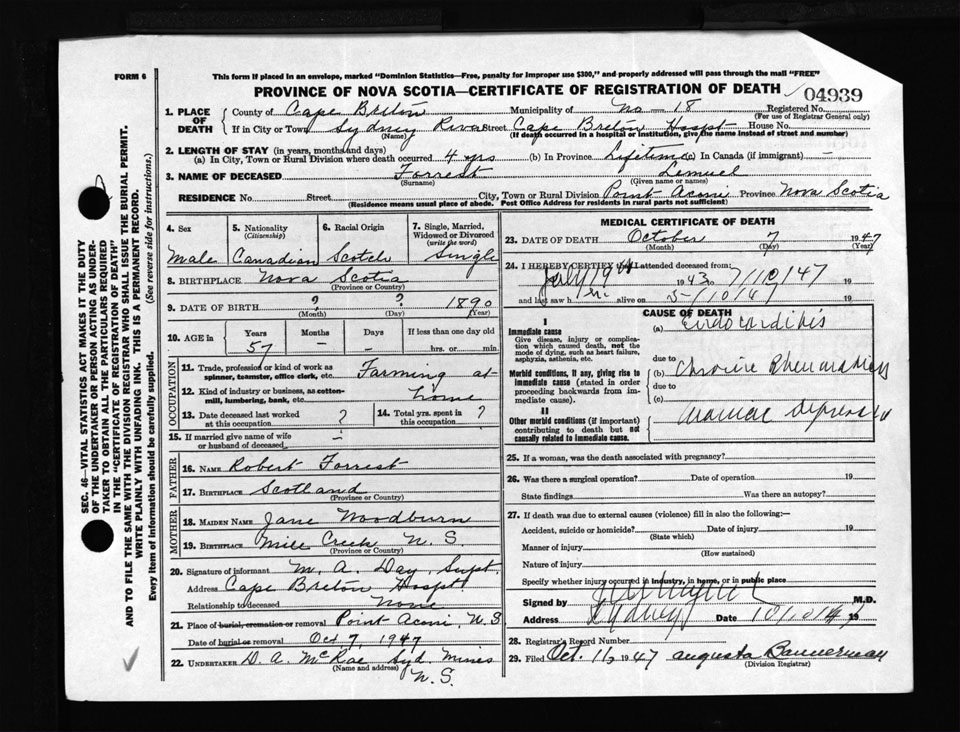 FORM 6
This form if placed in an envelope, marked "Dominion Statistics—Free, penalty for improper use $300," and properly addressed will pass through the mail "FREE"
PROVINCE OF NOVA SCOTIA—CERTIFICATE OF REGISTRATION OF DEATH
04939
1. PLACE OF DEATH
County of Cape Breton Municipality of No 18 Registered No.
(For use of Registrar General only)
If in City or Town Sydney River Street Cape Breton Hospt House No.
(Name) (If death occurred in a hospital or institution, give the name instead of street and number)
2. LENGTH OF STAY (in years, months and days)
(a) In City, Town or Rural Division where death occurred 4 yrs (b) In Province Lifetime (c) In Canada (if immigrant) —
3. NAME OF DECEASED Forrest Lemuel
(Surname) (Given name or names)
RESIDENCE No. Street City, Town or Rural Division Point Aconi Province Nova Scotia
(Residence means usual place of abode. Post Office Address for residents in rural parts not sufficient)
4. Sex
Male
5. Nationality
(Citizenship)
Canadian
6. Racial Origin
Scotch
7. Single, Married, Widowed or Divorced
(write the word)
Single
8. BIRTHPLACE Nova Scotia
(Province or Country)
9. DATE OF BIRTH ? ? 1890
(Month) (Day) (Year)
10. AGE in
Years Months Days If less than one day old
57 — — hrs. or min.
OCCUPATION
11. Trade, profession or kind of work as spinner, teamster, office clerk, etc. Farming at
12. Kind of industry or business, as cotton-mill, lumbering, bank, etc. home
13. Date deceased last worked at this occupation ?
14. Total yrs. spent in this occupation ?
15. If married give name of wife or husband of deceased —
FATHER
16. NAME Robert Forrest
17. BIRTHPLACE Scotland
(Province or Country)
MOTHER
18. MAIDEN NAME Jane Woodburn
19. BIRTHPLACE Mill Creek N. S.
(Province or Country)
20. Signature of informant M. A. Day, Supt.
Address Cape Breton Hospt.
Relationship to deceased None
21. Place of burial, cremation or removal Point Aconi, N. S
Date of burial or removal Oct 7, 1947
22. UNDERTAKER D. A. McRae Syd. Mines
(Name and address)
N. S.
MEDICAL CERTIFICATE OF DEATH
23. DATE OF DEATH October 7 1947
(Month) (Day) (Year)
24. I HEREBY CERTIFY that I attended deceased from
July 19 1943 to 7/10/47 19
and last saw h im alive on 5/10/47 19
CAUSE OF DEATH
I
Immediate cause
Give disease, injury or complication which caused death, not the mode of dying, such as heart failure, asphyxia, asthenia, etc.
(a)
due to
Morbid conditions, if any, giving rise to immediate cause (stated in order proceeding backwards from immediate cause).
(b) Chronic
due to
(c)
II
Other morbid conditions (if important) contributing to death but not causally related to immediate cause.
Maniac Depressed
25. If a woman, was the death associated with pregnancy?
26. Was there a surgical operation? Date of operation 19
State findings Was there an autopsy?
27. If death was due to external causes (violence) fill in also the following:—
Accident, suicide or homicide? Date of injury 19
(State which)
Manner of injury
(How sustained)
Nature of injury
Specify whether injury occurred in industry, in home, or in public place
Signed by M.D.
Address Sydney Date 10/10/47 19
28. Registrar's Record Number
29. Filed Oct. 11, 1947 Augusta Bannerman
(Division Registrar)
SEC. 46—VITAL STATISTICS ACT MAKES IT THE DUTY
OF THE UNDERTAKER OR PERSON ACTING AS UNDER-
TAKER TO OBTAIN ALL THE PARTICULARS REQUIRED
IN THE "CERTIFICATE OF REGISTRATION OF DEATH"
AND TO FILE THE SAME WITH THE DIVISION REGISTRAR WHO SHALL ISSUE THE BURIAL PERMIT.
WRITE PLAINLY WITH UNFADING INK. THIS IS A PERMANENT RECORD.
Every item of information should be carefully supplied. (See reverse side for instructions.)